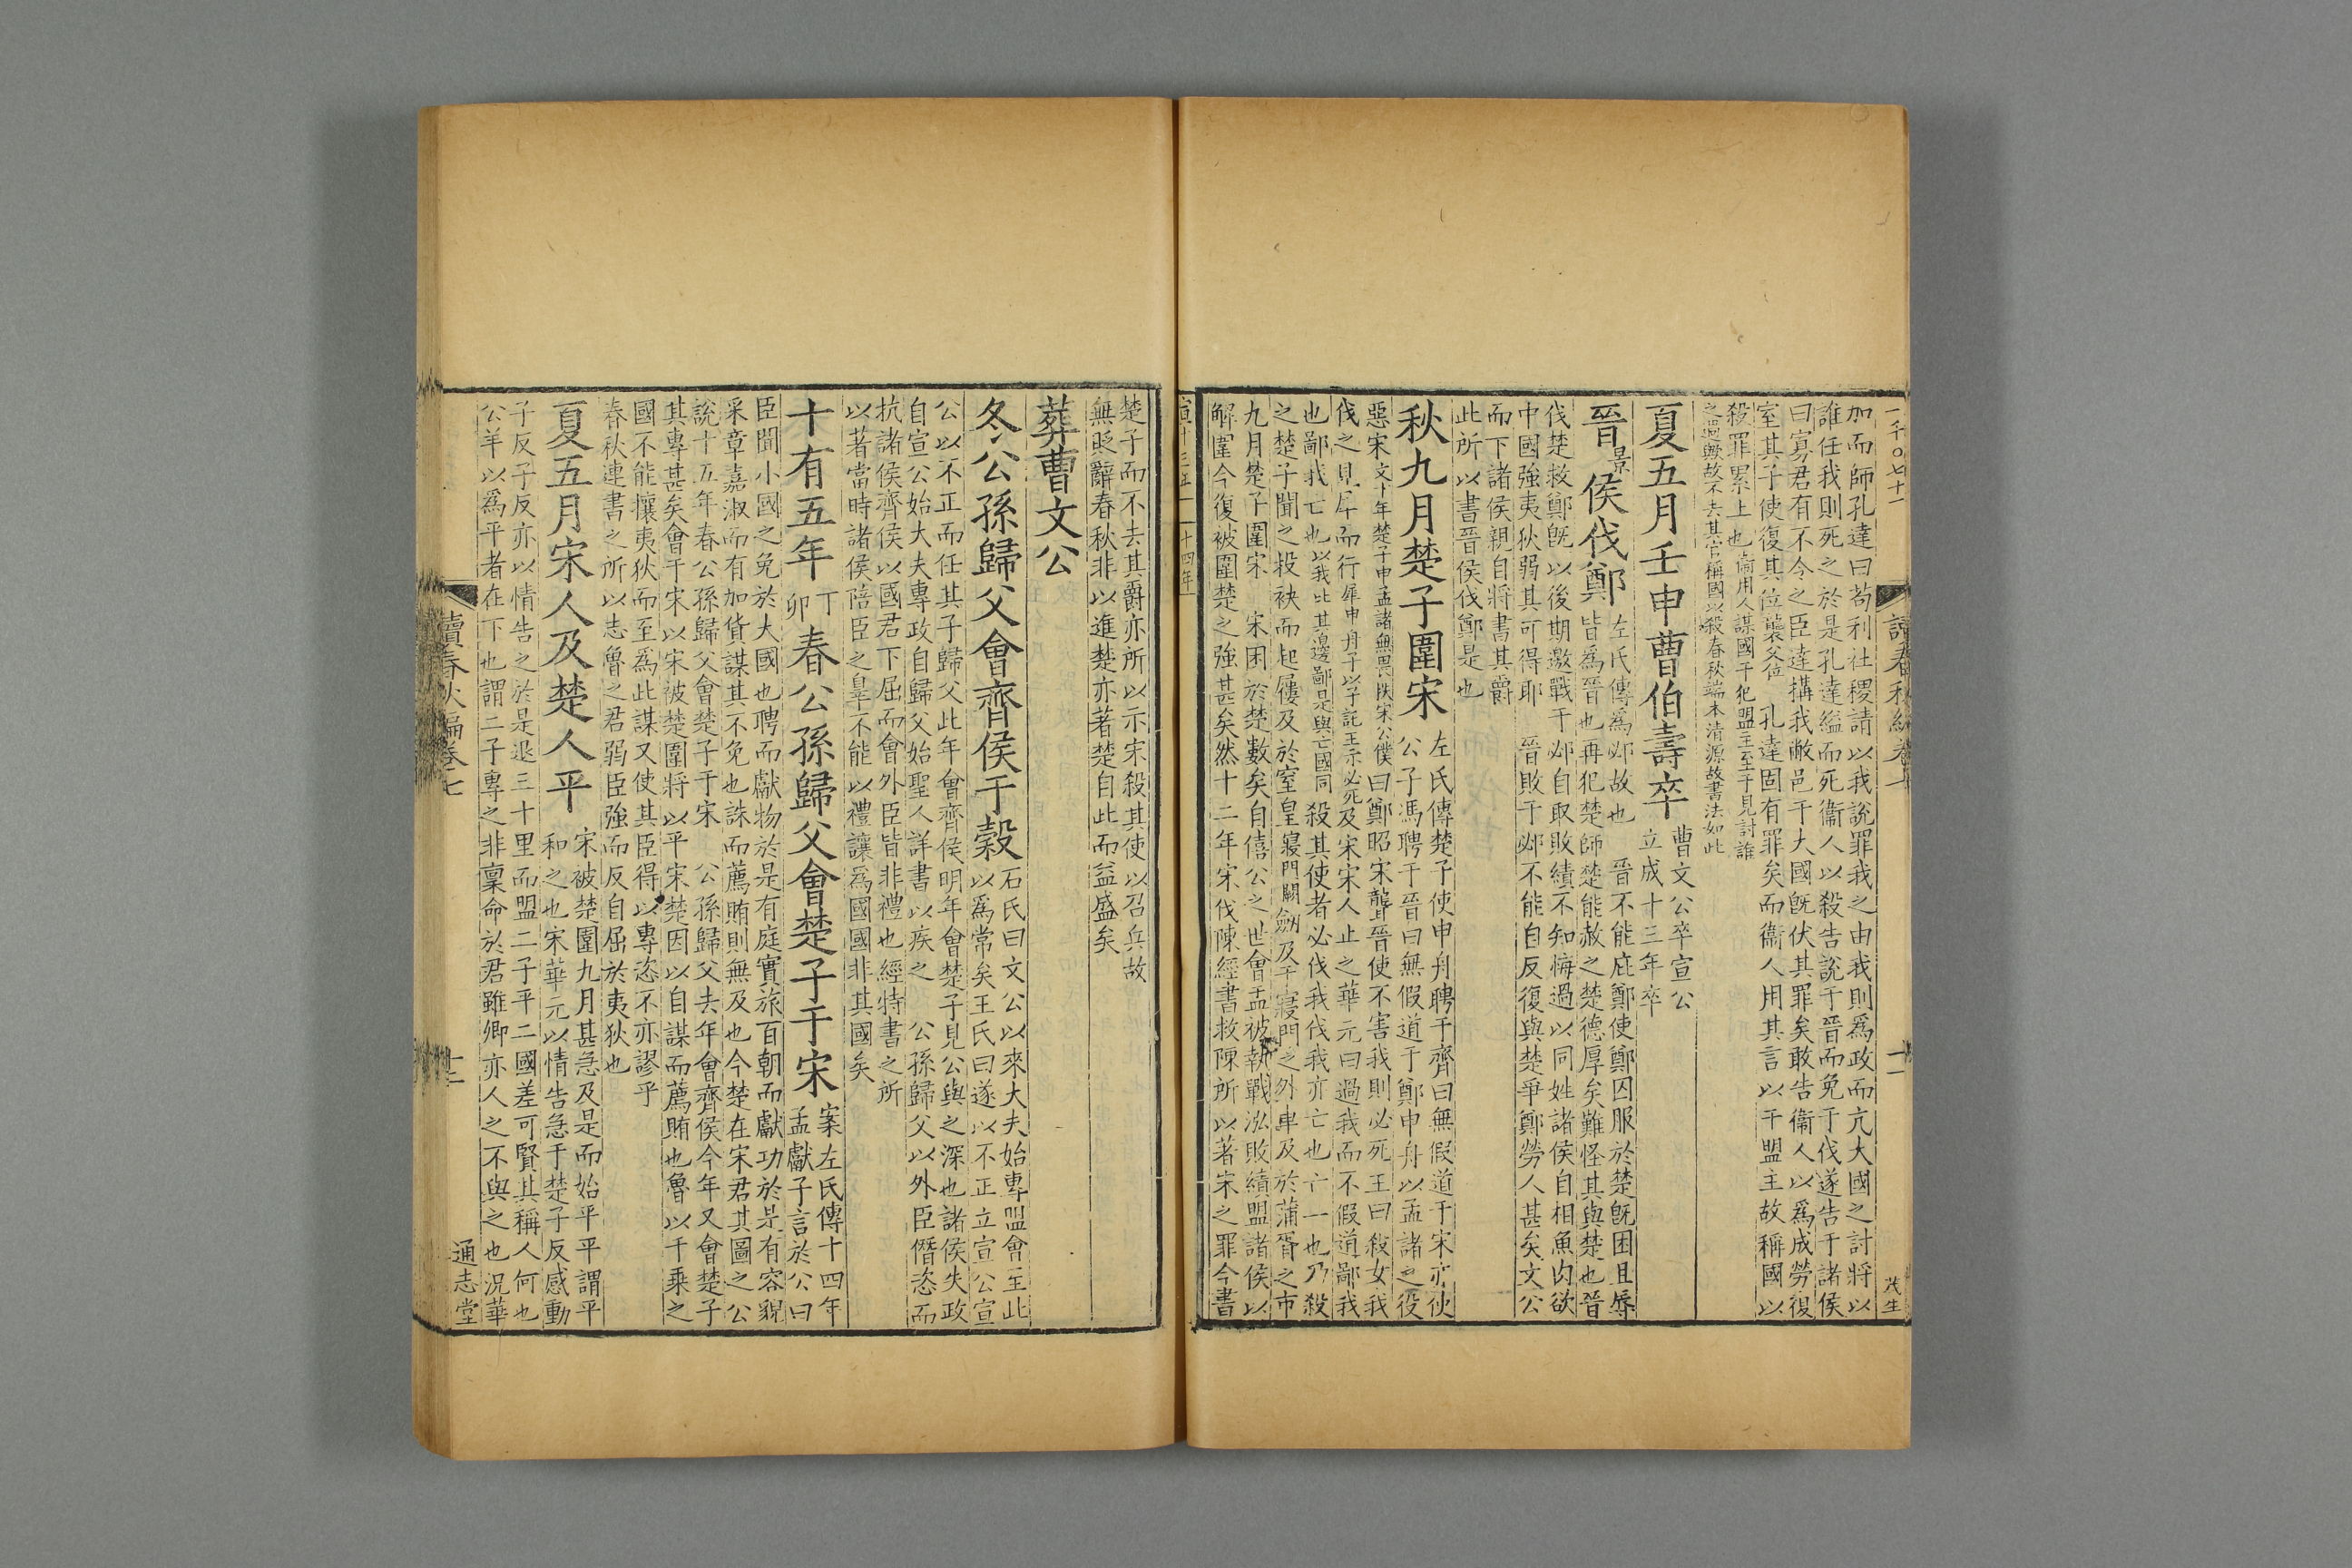 一千〇七十一
讀春秋編卷七
十一
茂生
加而師孔達曰苟利社稷請以我說罪我之由我則為政而亢大國之討將以
誰任我則死之於是孔達縊而死衞人以殺告說于晉而免于伐遂告于諸侯
曰寡君有不令之臣達搆我敝邑于大國旣伏其罪矣敢告衞人以為成勞復
室其子使復其位襲父位 孔達固有罪矣而衞人用其言以干盟主故稱國以
殺罪累上也衞用人謀國干犯盟主至于見討誰
之過歟故不去其官稱國以殺春秋端本清源故書法如此
夏五月壬申曹伯壽卒曹文公卒宣公
立成十三年卒
晉景侯伐鄭左氏傳為邲故也 晉不能庇鄭使鄭囚服於楚旣困且辱
皆為晉也再犯楚師楚能赦之楚德厚矣難怪其與楚也晉
伐楚救鄭旣以後期邀戰于邲自取敗績不知悔過以同姓諸侯自相魚肉欲
中國強夷狄弱其可得耶 晉敗于邲不能自反復與楚爭鄭勞人甚矣文公
而下諸侯親自將書其爵
此所以書晉侯伐鄭是也
秋九月楚子圍宋左氏傳楚子使申舟聘于齊曰無假道于宋亦使
公子馮聘于晉曰無假道于鄭申舟以孟諸之役
惡宋文十年楚子申孟諸無畏抶宋公僕曰鄭昭宋聾晉使不害我則必死王曰殺女我
伐之見犀而行犀申舟子以子託王示必死及宋宋人止之華元曰過我而不假道鄙我
也鄙我亡也以我比其邊鄙是與亡國同 殺其使者必伐我伐我亦亡也亡一也乃殺
之楚子聞之投袂而起屨及於窒皇寢門闕劒及于寢門之外車及於蒲胥之市
九月楚子圍宋 宋困於楚數矣自僖公之世會盂被執戰泓敗績盟諸侯以
解圍今復被圍楚之強甚矣然十二年宋伐陳經書救陳所以著宋之罪今書
楚子而不去其爵亦所以示宋殺其使以召兵故
無貶辭春秋非以進楚亦著楚自此而益盛矣
葬曹文公
冬公孫歸父會齊侯于穀石氏曰文公以來大夫始專盟會至此
以為常矣王氏曰遂以不正立宣公宣
公以不正而任其子歸父此年會齊侯明年會楚子見公與之深也諸侯失政
自宣公始大夫專政自歸父始聖人詳書以疾之 公孫歸父以外臣僭恣而
抗諸侯齊侯以國君下屈而會外臣皆非禮也經特書之所
以著當時諸侯陪臣之辠不能以禮讓為國國非其國矣
十有五年丁卯春公孫歸父會楚子于宋案左氏傳十四年
孟獻子言於公曰
臣聞小國之免於大國也聘而獻物於是有庭實旅百朝而獻功於是有容貌
采章嘉淑而有加貨謀其不免也誅而薦賄則無及也今楚在宋君其圖之公
說十五年春公孫歸父會楚子于宋 公孫歸父去年會齊侯今年又會楚子
其專甚矣會于宋以宋被楚圍將以平宋楚因以自謀而薦賄也魯以千乗之
國不能攘夷狄而至為此謀又使其臣得以專恣不亦謬乎
春秋連書之所以志魯之君弱臣強而反自屈於夷狄也
夏五月宋人及楚人平宋被楚圍九月甚急及是而始平平謂平
和之也宋華元以情告急于楚子反感動
子反子反亦以情告之於是退三十里而盟二子平二國差可賢其稱人何也
公羊以為平者在下也謂二子專之非稟命於君雖卿亦人之不與之也況華
讀春秋編卷七
十一
通志堂